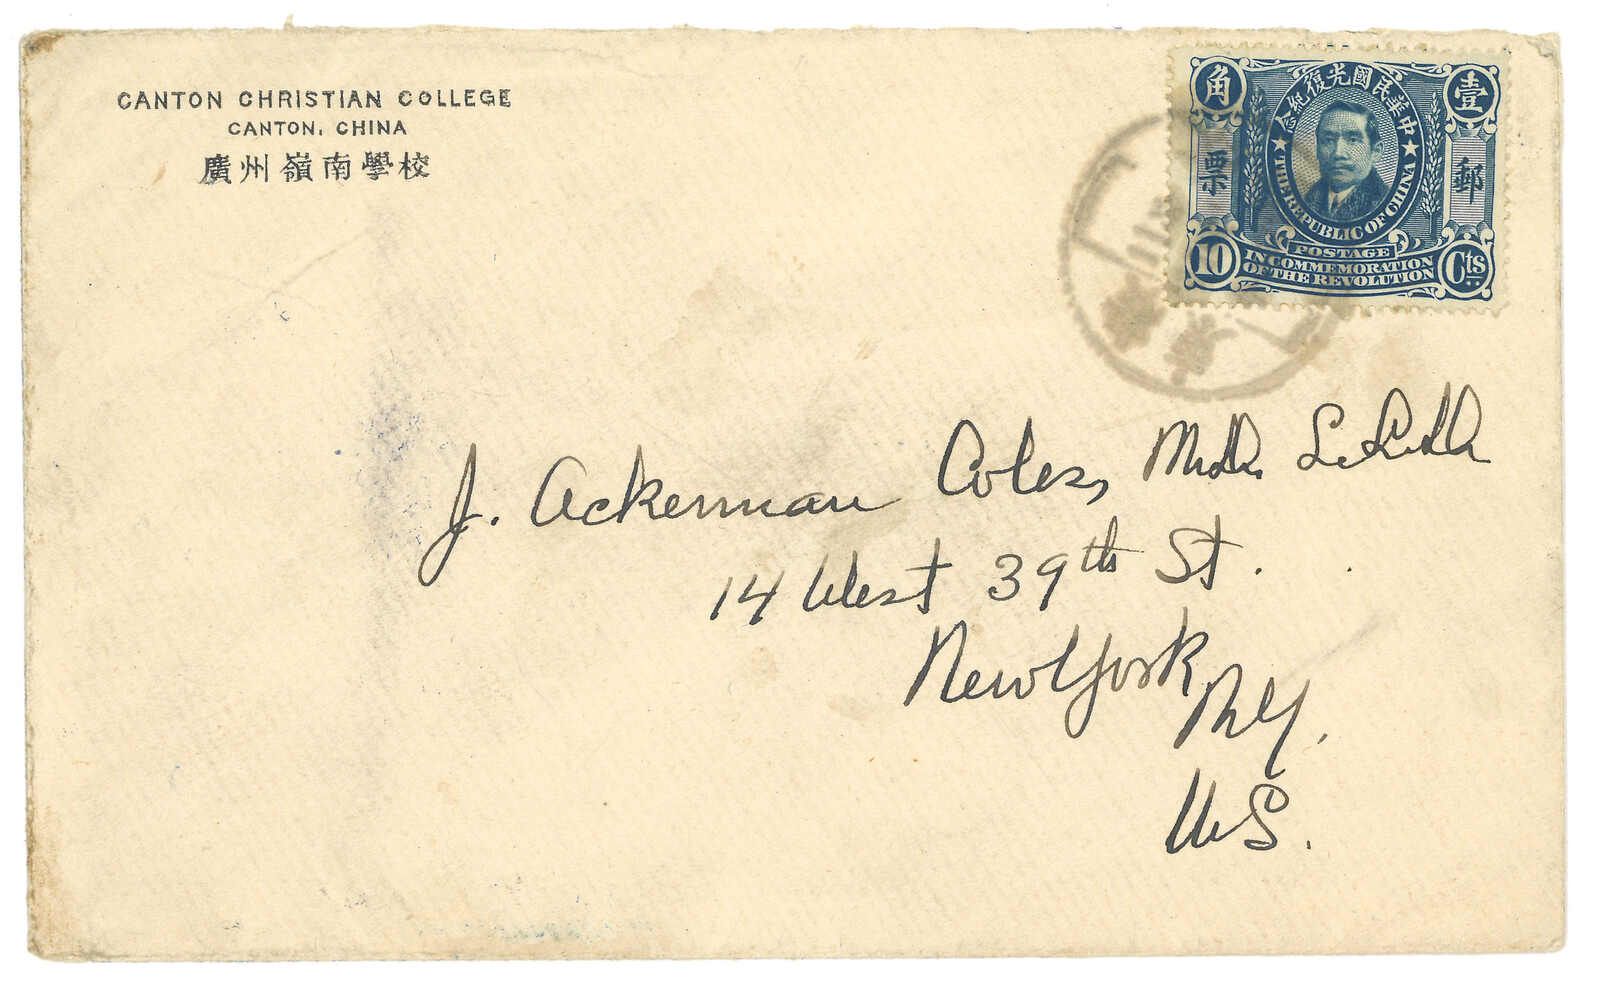 CANTON CHRISTIAN COLLEGE
CANTON, CHINA
廣州嶺南學校
中華民國光復紀念
壹
角
郵
票
THE REPUBLIC OF CHINA
POSTAGE
IN COMMEMORATION
OF THE REVOLUTION
10 Cts
J. Ackerman Coles, M.D. L.L.D.
14 West 39th St.
New York,
N.Y.
U.S.